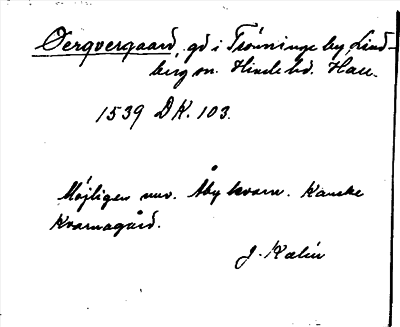 Oerqvergaard, gd i Trönninge by, Lind-
berg sn. Himle hd. Hall.
1539 DK. 103.
Möjligen nuv. Åby kvarn. Kanske
Kvarnagård.
J. Kalén